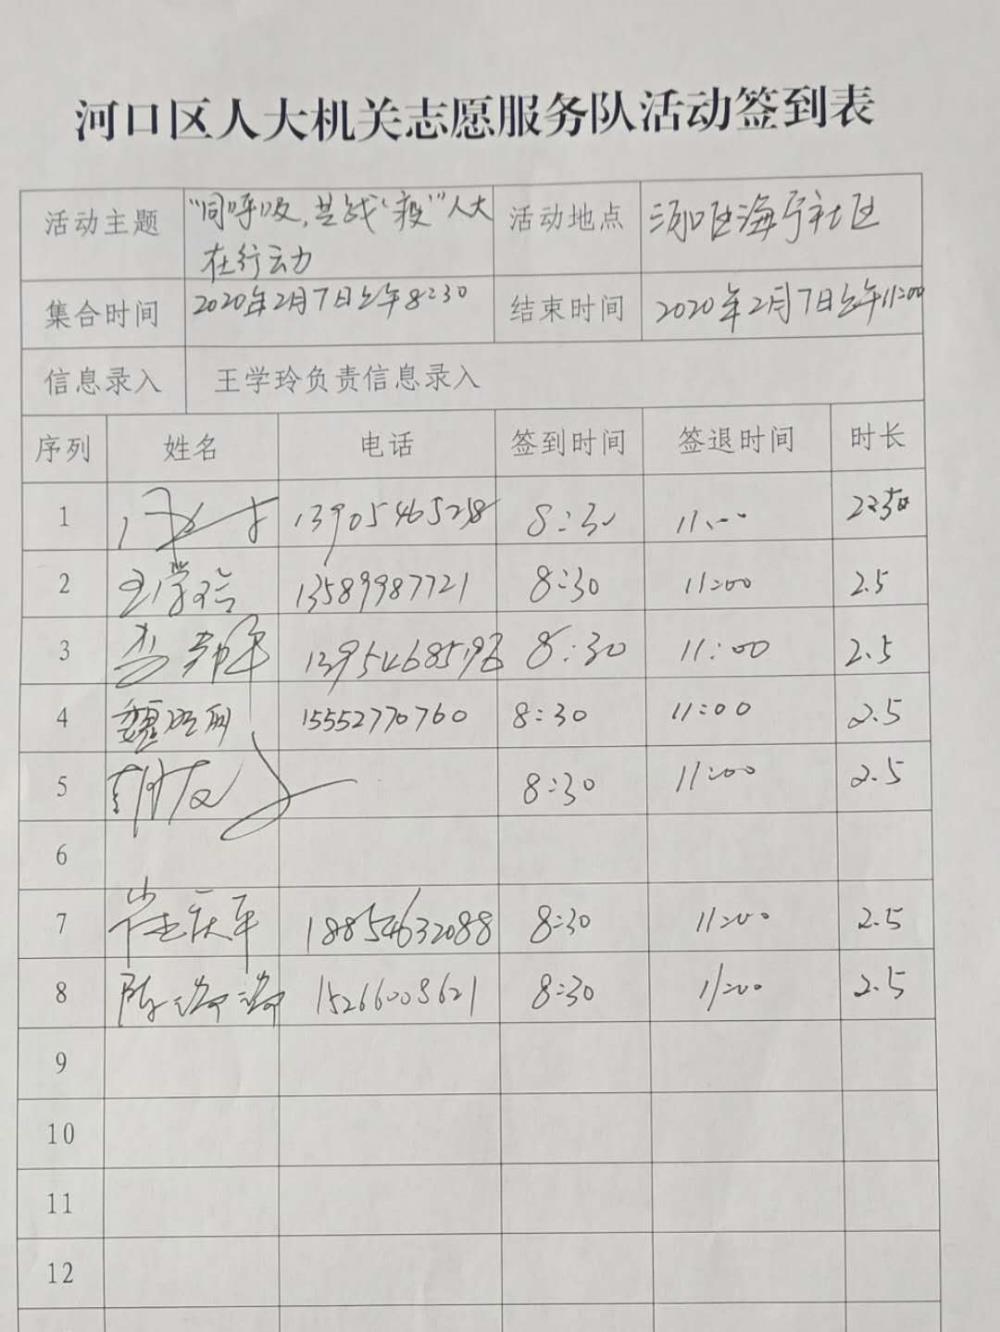 河口区人大机关志愿服务队活动签到表
活动主题 "同呼吸,共战"疫""人大 活动地点 河口区海宁社区
在行动
集合时间 2020年2月7日上午8:30 结束时间 2020年2月7日上午11:00
信息录入 王学玲负责信息录入
序列 姓名 电话 签到时间 签退时间 时长
1 8:30 11:00
2 王学玲 13589987721 8:30 11:00 2.5
3 8:30 11:00 2.5
4 15552770760 8:30 11:00 2.5
5 8:30 11:00 2.5
6
7 崔庆平 18854632088 8:30 11:00 2.5
8 15266008621 8:30 11:00 2.5
9
10
11
12